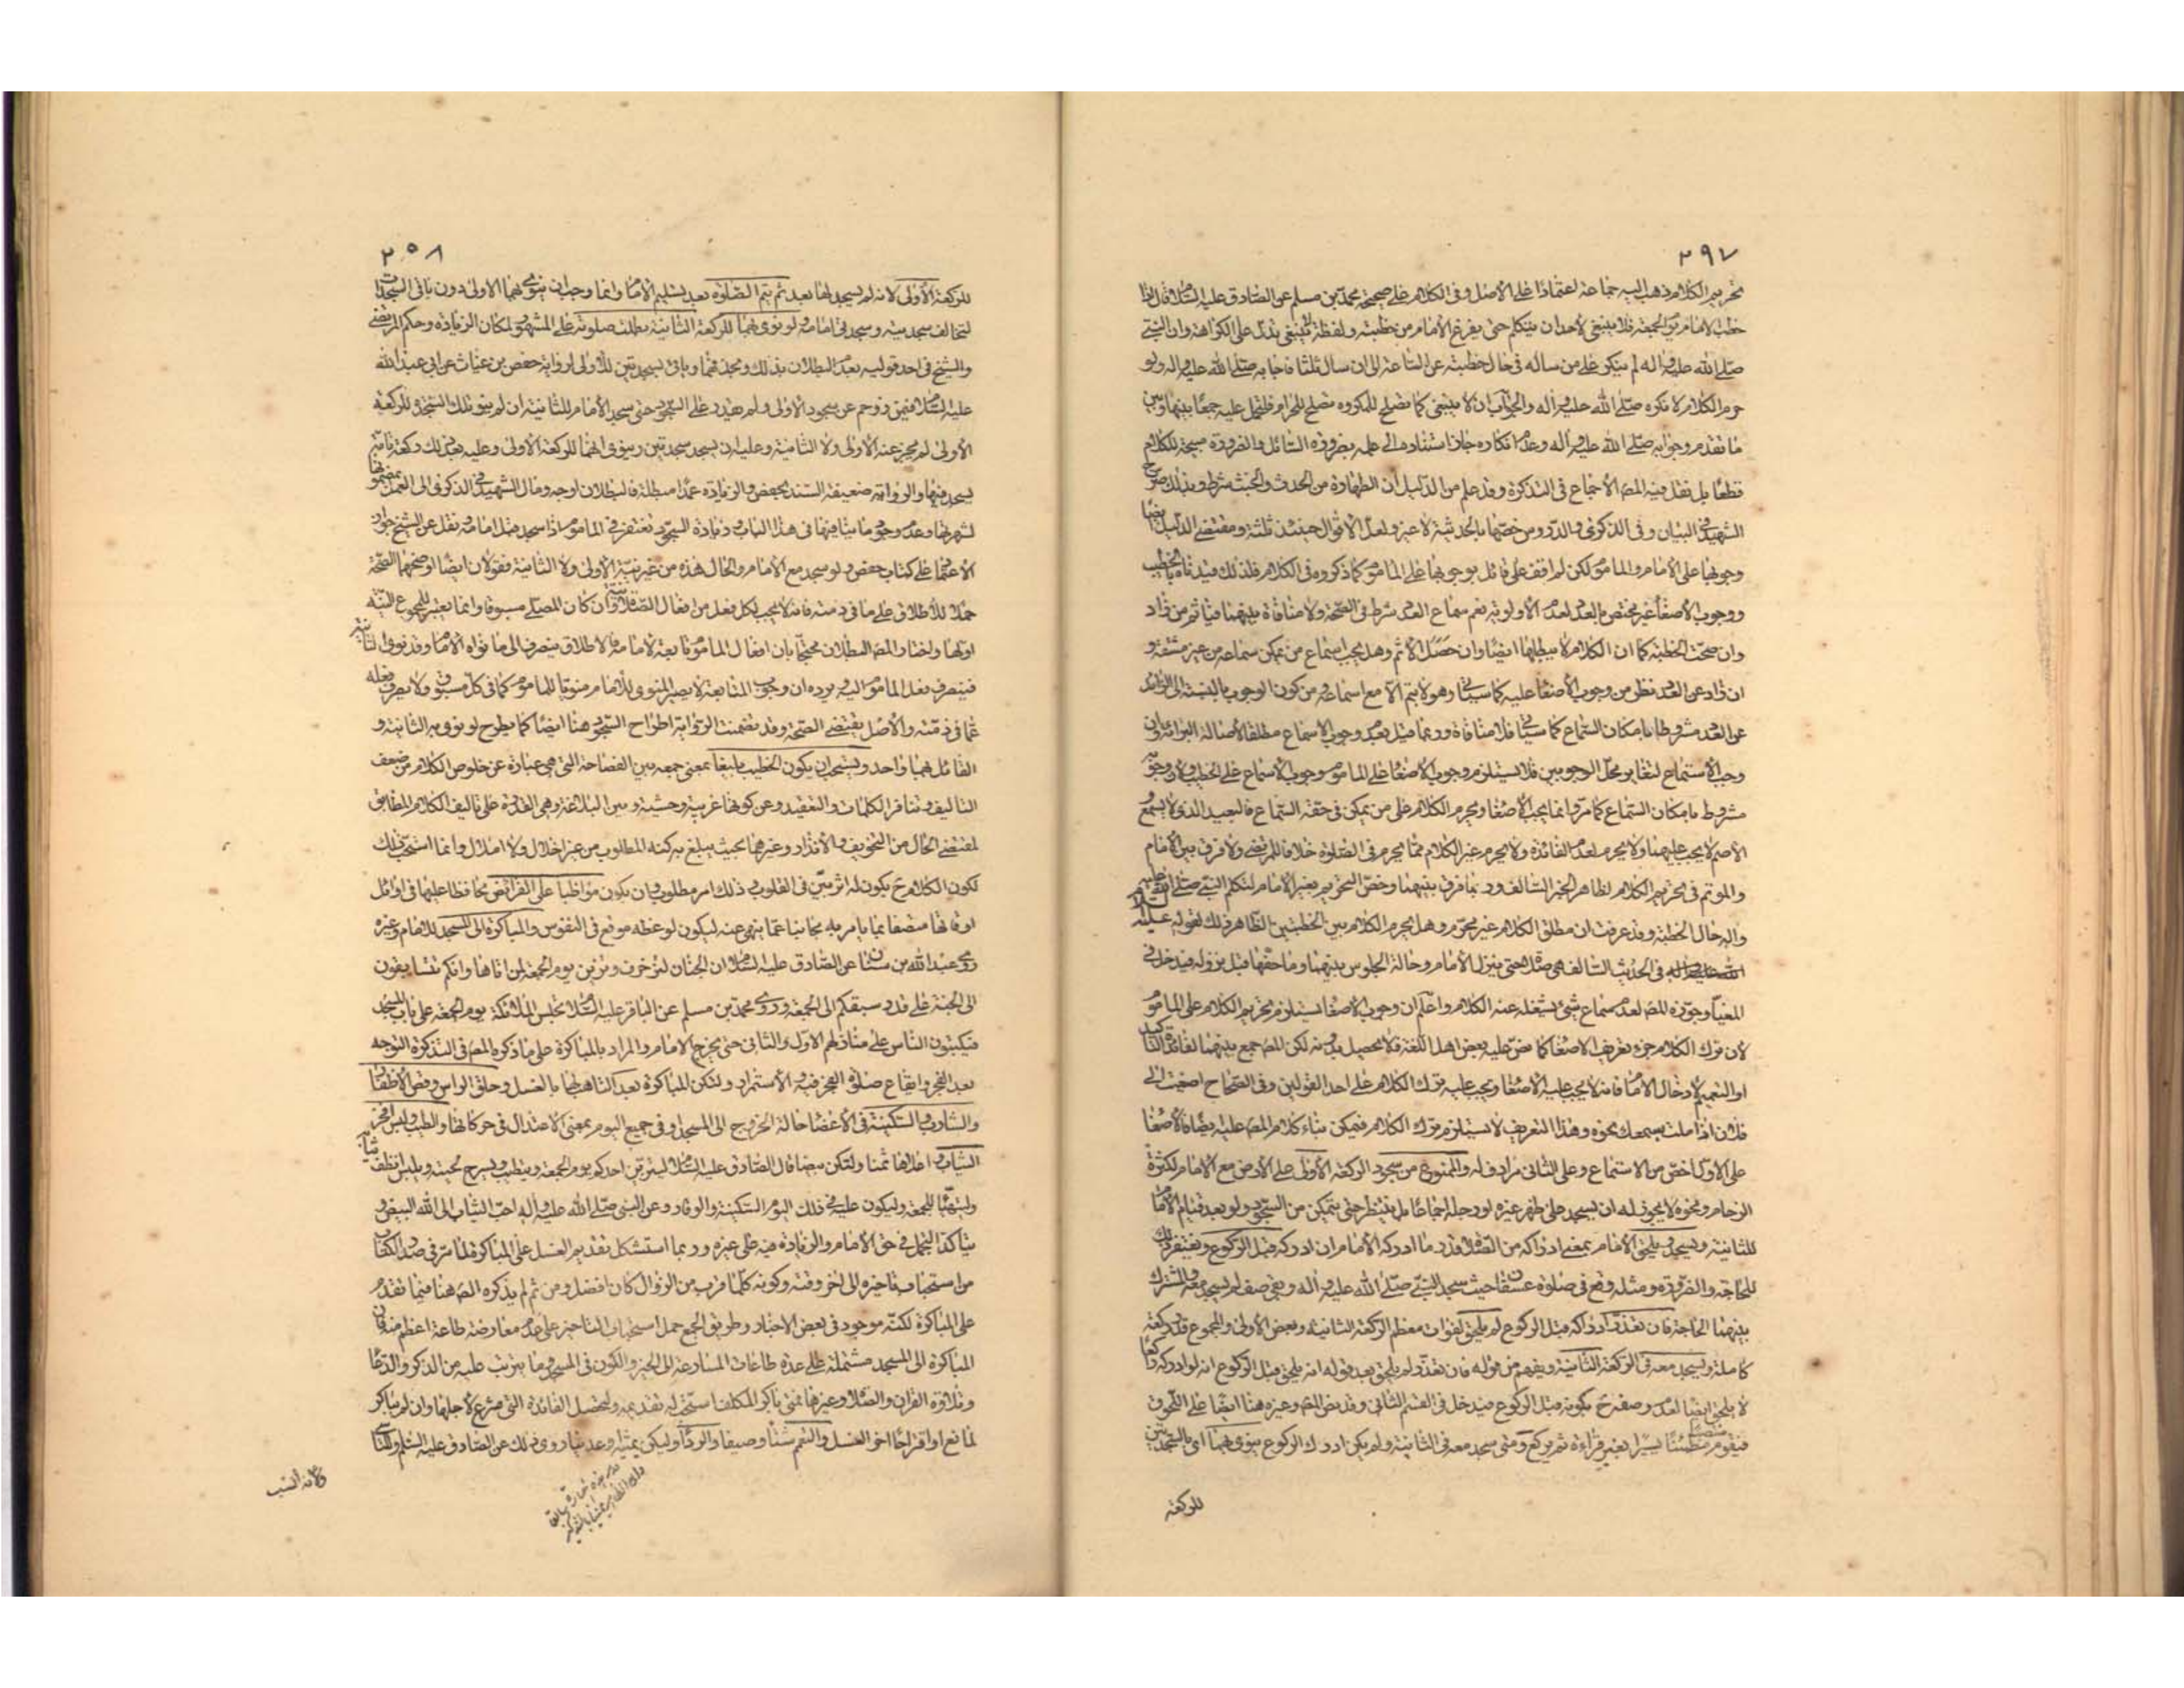 ٢٩٧
تحريم الكلام ذهب اليه جماعة اعتمادا على الاصل وفى الكلام على صحيحة محمد بن مسلم عن الصادق عليه السلام قال اذا
خطب الامام يوم الجمعة فلا ينبغى لاحد ان يتكلم حتى يفرغ الامام من خطبته ولفظة لا ينبغى يدل على الكراهة وان النبى
صلى الله عليه واله لم ينكر على من ساله فى حال خطبته عن الساعة الى ان سال ثلثا فاجابه صلى الله عليه واله ولو
حرم الكلام لانكره صلى الله عليه واله والجواب ان لا ينبغى كما تصلح للمكروه تصلح للحرام فتحمل عليه جمعا بينها وبين
ما تقدم وجوابه صلى الله عليه واله وعدم انكاره جاز استناده الى علمه بضرورة السائل والضرورة مبيحة للكلام
قطعا بل نقل فيه المص الاجماع فى التذكرة وقد علم من الدليل ان الطهارة من الحدث والخبث شرط وبذلك صرح
الشهيد فى البيان وفى الذكرى والدروس خصها بالحدثية لا غير ولعل الاقوال حينئذ ثلثة ومقتضى الدليل ايضا
وجوبها على الامام والماموم لكن لم اقف على قائل بوجوبها على الماموم كما ذكروه فى الكلام فلذلك قيدناه بالخطيب
ووجوب الاصغاء غير مختص بالعدد لعدم الاولوية نعم سماع العدد شرط فى الصحة ولا منافاة بينهما فياثم من زاد
وان صحت الخطبة كما ان الكلام لا يبطلها ايضا وان حصل الاثم وهل يجب اسماع من يمكن سماعه من غير مشقة و
ان زاد عن العدد نظر من وجوب الاصغاء عليه كما سياتى وهو لا يتم الا مع اسماعه ومن كون الوجوب بالنسبة الى الزائد
عن العدد مشروطا بامكان السماع كما سياتى فلا منافاة وربما قيل بعدم وجوب الاسماع مطلقا لاصالة البرائة وان
وجب الاستماع لتغاير محل الوجوبين فلا يستلزم وجوب الاصغاء على الماموم وجوب الاسماع على الخطيب ولان وجوبه
مشروط بامكان السماع كما مر وانما يجب الاصغاء ويحرم الكلام على من يمكن فى حقه السماع فالبعيد الذى لا يسمع و
الاصم لا يجب عليهما ولا يحرم لعدم الفائدة ولا يحرم غير الكلام مما يحرم فى الصلوة خلافا للمرتضى ولا فرق بين الامام
والمؤتم فى تحريم الكلام لظاهر الخبر السالف وربما فرق بينهما وخص التحريم بغير الامام لتكلم النبى صلى الله عليه
واله حال الخطبة وقد عرفت ان مطلق الكلام غير محرم وهل يحرم الكلام بين الخطبتين الظاهر ذلك لقوله عليه السلام
فى الحديث السالف هى صلوة حتى ينزل الامام وحالة الجلوس بينهما وما حقها قبل نزوله فيدخل فى
المغيا وجوزه المص لعدم سماع شئ يشغله عنه الكلام واعلم ان وجوب الاصغاء يستلزم تحريم الكلام على الماموم
لان ترك الكلام جزء تعريف الاصغاء كما نص عليه بعض اهل اللغة فلا تحصيل بدونه لكن المص جمع بينهما لفائدة التاكيد
او التعميم لادخال الامام فانه لا يجب عليه الاصغاء ويجب عليه ترك الكلام على احد القولين وفى الصحاح اصغيت الى
فلان اذا ملت بسمعك نحوه وهذا التعريف لا يستلزم ترك الكلام فيمكن بناء كلام المص عليه ايضا فالاصغاء
على الاول اخص من الاستماع وعلى الثانى مرادف له والممنوع من سجود الركعة الاولى على الارض مع الامام لكثرة
الزحام ونحوه لا يجوز له ان يسجد على ظهر غيره او رجله اجماعا بل ينتظر حتى يتمكن من السجود ولو بعد قيام الامام
للثانية ويسجد ويلحق الامام بمعنى ادراكه من الصلوة قدر ما ادركه الامام ان ادركه قبل الركوع ويغتفر ذلك
للحاجة والضرورة ومثله وقع فى صلوة عسفان حيث سجد النبى صلى الله عليه واله وبقى صف لم يسجد معه والمشترك
بينهما الحاجة فان تعذر ادراكه قبل الركوع لم يلحق لفوات معظم الركعة الثانية وبعض الاولى والمجموع قدر ركعة
كاملة ويسجد معه فى الركعة الثانية ويفهم من قوله فان تعذر لم يلحق بعد قوله انه يلحق قبل الركوع انه لو ادركه راكعا
لا يلحق ايضا لعدم وصفه ح بكونه قبل الركوع فيدخل فى القسم الثانى وقد نص المص وغيره هنا ايضا على اللحوق
فيقوم منتصبا مطمئنا يسيرا بغير قراءة ثم يركع ومتى سجد معه فى الثانية ولم يكن ادرك الركوع ينوى بهما اى بالسجدتين
للركعة
٢٥٨
للركعة الاولى لانه لم يسجد لها بعد ثم يتم الصلوة بعد تسليم الامام وانما وجب ان ينوى بهما الاولى دون باقى السجدات
لتخالف سجدتيه وسجدتى امامه ولو نوى بهما للركعة الثانية بطلت صلوته على المشهور لمكان الزيادة وحكم المرتضى
والشيخ فى احد قوليه بعدم البطلان بذلك وبحذفهما وياتى بسجدتين للاولى لرواية حفص بن غياث عن ابى عبد الله
عليه السلام فيمن زوحم عن سجود الاولى ولم يقدر على السجود حتى سجد الامام للثانية ان لم ينو تلك السجدة للركعة
الاولى لم يجز عنه الاولى ولا الثانية وعليه ان يسجد سجدتين وينوى انهما للركعة الاولى وعليه بعد ذلك ركعة تامة
يسجد فيها والرواية ضعيفة السند بحفص والزيادة عمدا مبطلة فالبطلان اوجه ومال الشهيد فى الذكرى الى العمل بمضمونها
لشهرتها وعدم وجود ما ينافيها فى هذا الباب وزيادة السجود تغتفر فى الماموم اذا سجد قبل امامه ونقل عن الشيخ جواز
الاعتماد على كتاب حفص ولو سجد مع الامام والحال هذه من غير نية الاولى ولا الثانية فقولان ايضا اوضحهما الصحة
حملا للاطلاق على ما فى ذمته فانه لا يجب لكل فعل من افعال الصلوة نية وان كان المصلى مسبوقا وانما يعتبر للمجموع النية
اولها واختار المص البطلان محتجا بان افعال الماموم تابعة لامامه فالاطلاق ينصرف الى ما نواه الامام وقد نوى الثانية
فينصرف فعل الماموم اليه ويرده ان وجوب المتابعة لا يصير المنوى للامام منويا للماموم كما فى كل مسبوق ولا يصرف فعله
عما فى ذمته والاصل يقتضى الصحة وقد تضمنت الرواية اطراح السجود هنا ايضا كما يطرح لو نوى به الثانية و
القائل بهما واحد ويستحب ان يكون الخطيب بليغا بمعنى جمعه بين الفصاحة التى هى عبارة عن خلوص الكلام من ضعف
التاليف وتنافر الكلمات والتعقيد وعن كونها غريبة وحشية وبين البلاغة وهى القدرة على تاليف الكلام المطابق
لمقتضى الحال من التخويف والانذار وغيرهما بحيث يبلغ به كنه المطلوب من غير اخلال ولا املال وانما استحب ذلك
لكون الكلام ح يكون له اثر بين فى القلوب وذلك امر مطلوب وان يكون مواظبا على الفرائض محافظا عليها فى اوائل
اوقاتها متصفا بما يامر به مجانبا عما ينهى عنه ليكون لوعظه موقع فى النفوس والمباكرة الى المسجد للامام وغيره
روى عبد الله بن سنان عن الصادق عليه السلام ان الجنان لتزخرف وتزين يوم الجمعة لمن اتاها وانكم تتسابقون
الى الجنة على قدر سبقكم الى الجمعة وروى محمد بن مسلم عن الباقر عليه السلام تجلس الملائكة يوم الجمعة على باب المسجد
فيكتبون الناس على منازلهم الاول والثانى حتى يخرج الامام والمراد بالمباكرة على ما ذكره المص فى التذكرة التوجه
بعد الفجر وايقاع صلوة الفجر فيه والاستمرار ولتكن المباكرة بعد التاهب لها بالغسل وحلق الراس وقص الاظفار
والشارب والسكينة فى الاعضاء حالة الخروج الى المسجد او فى جميع اليوم بمعنى الاعتدال فى حركاتها والطيب ولبس افخر
الثياب واعلاها ثمنا ولتكن بيضا قال الصادق عليه السلام ليتزين احدكم يوم الجمعة ويتطيب ويسرح لحيته ويلبس انظف ثيابه
وليتهيا للجمعة وليكون عليه فى ذلك اليوم السكينة والوقار وعن النبى صلى الله عليه واله احب الثياب الى الله البيض و
يتاكد التجمل فى حق الامام والزيادة فيه على غيره وربما استشكل تقديم الغسل على المباكرة لما مر فى صدر الكتاب
من استحباب تاخيره الى اخر وقته وكونه كلما قرب من الزوال كان افضل ومن ثم لم يذكره المص هنا فيما تقدم
على المباكرة لكنه موجود فى بعض الاخبار وطريق الجمع حمل استحباب التاخير على عدم معارضة طاعة اعظم منه فان
المباكرة الى المسجد مشتملة على عدة طاعات المسارعة الى الخير والكون فى المسجد وما يترتب عليه من الذكر والدعاء
وتلاوة القران والصلوة وغيرها فمتى باكر المكلف استحب له تقديمه ولتحصل الفائدة التى شرع لاجلها وان لم يباكر
لمانع او اقتراحا اخر الغسل والتعمم شتاء وصيفا والرداء وليكن يمنيا او عدنيا روى ذلك عن الصادق عليه السلم